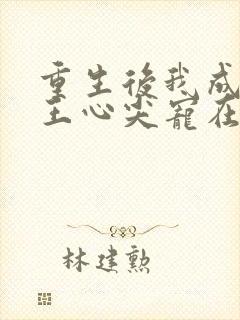 重生後我成
王心尖寵在
林建勲